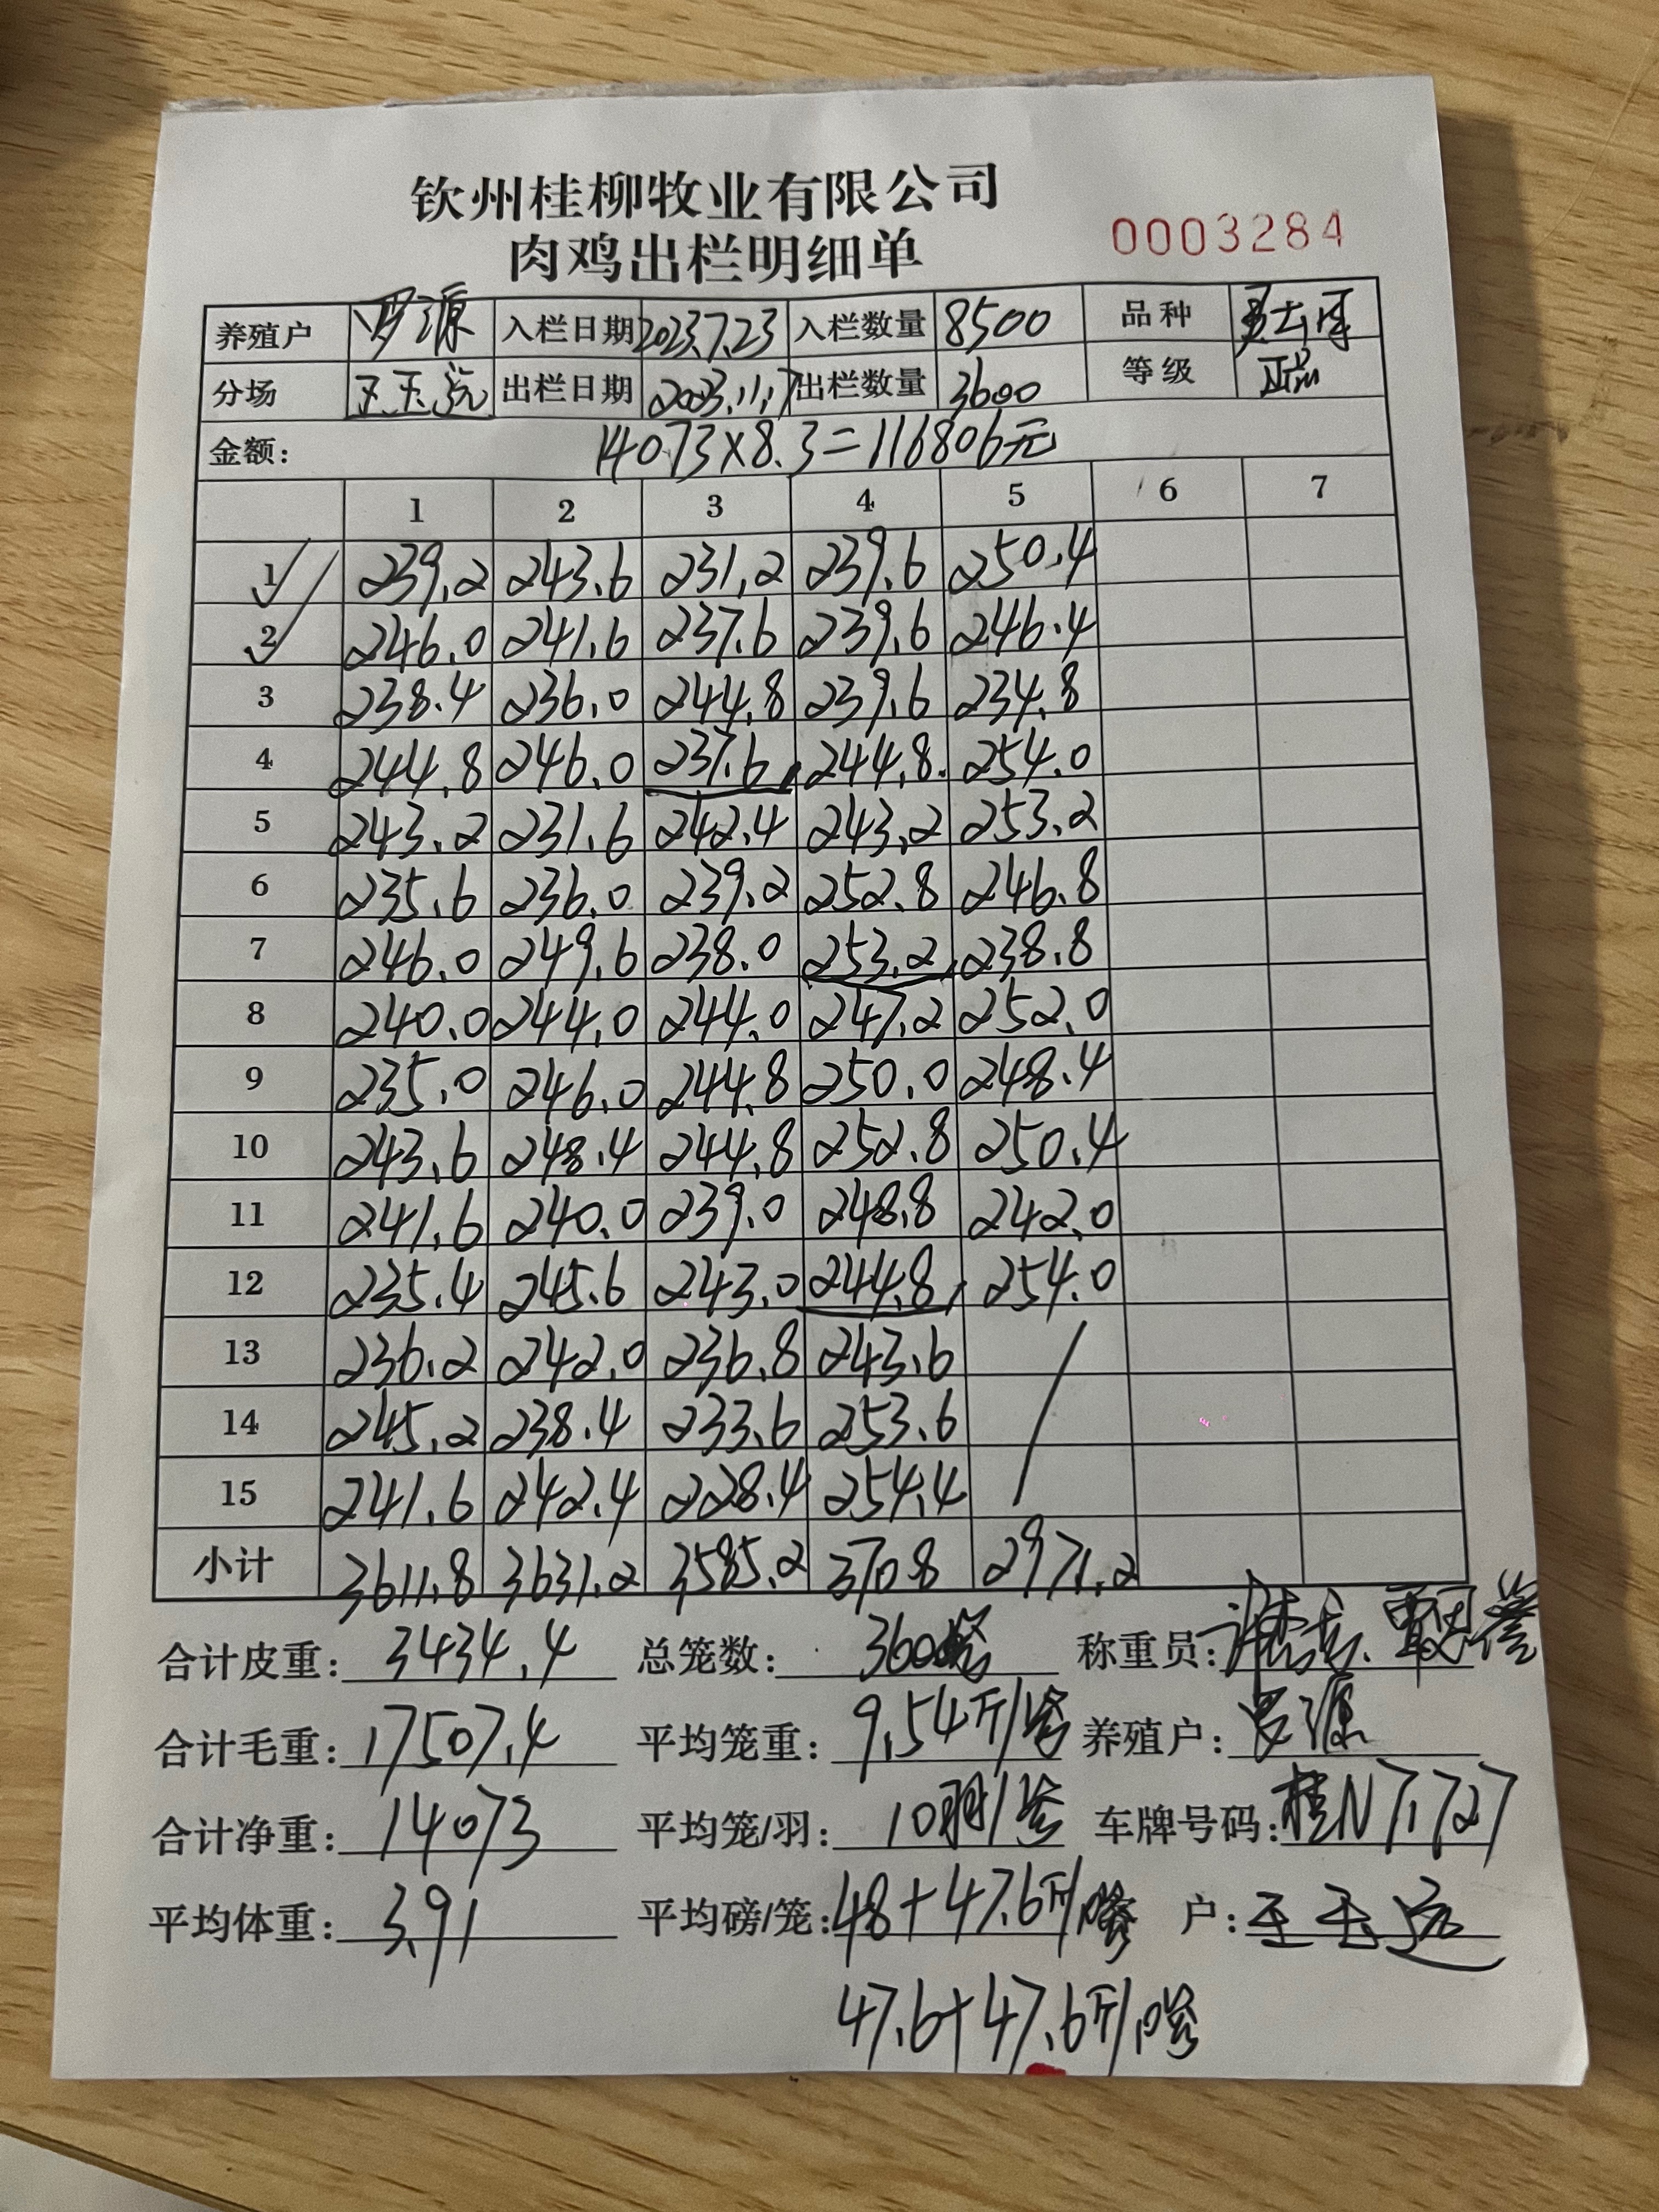 钦州桂柳牧业有限公司
肉鸡出栏明细单
0003284
养殖户 罗源 入栏日期 2023.7.23 入栏数量 8500 品种
分场 王玉远 出栏日期 2023.11.17 出栏数量 3600 等级
金额: 14073×8.3=116806元
1 2 3 4 5 6 7
1 239.2 243.6 231.2 239.6 250.4
2 246.0 241.6 237.6 239.6 246.4
3 238.4 236.0 244.8 239.6 234.8
4 244.8 246.0 237.6 244.8 254.0
5 243.2 231.6 242.4 243.2 253.2
6 235.6 236.0 239.2 252.8 246.8
7 246.0 249.6 238.0 253.2 238.8
8 240.0 244.0 244.0 247.2 252.0
9 235.0 246.0 244.8 250.0 248.4
10 243.6 248.4 244.8 252.8 250.4
11 241.6 240.0 239.0 248.8 242.0
12 235.4 245.6 243.0 244.8 254.0
13 236.2 242.0 236.8 243.6
14 245.2 238.4 233.6 253.6
15 241.6 242.4 228.4 254.4
小计 3611.8 3631.2 3585.2 3708 2971.2
合计皮重: 3434.4 总笼数: 360 称重员:
合计毛重: 17507.4 平均笼重: 9.54斤/ 养殖户: 罗源
合计净重: 14073 平均笼/羽: 10羽/ 车牌号码: 桂N7.727
平均体重: 3.91 平均磅/笼: 48+47.6斤/ 户: 王玉远
47.6+47.6斤/